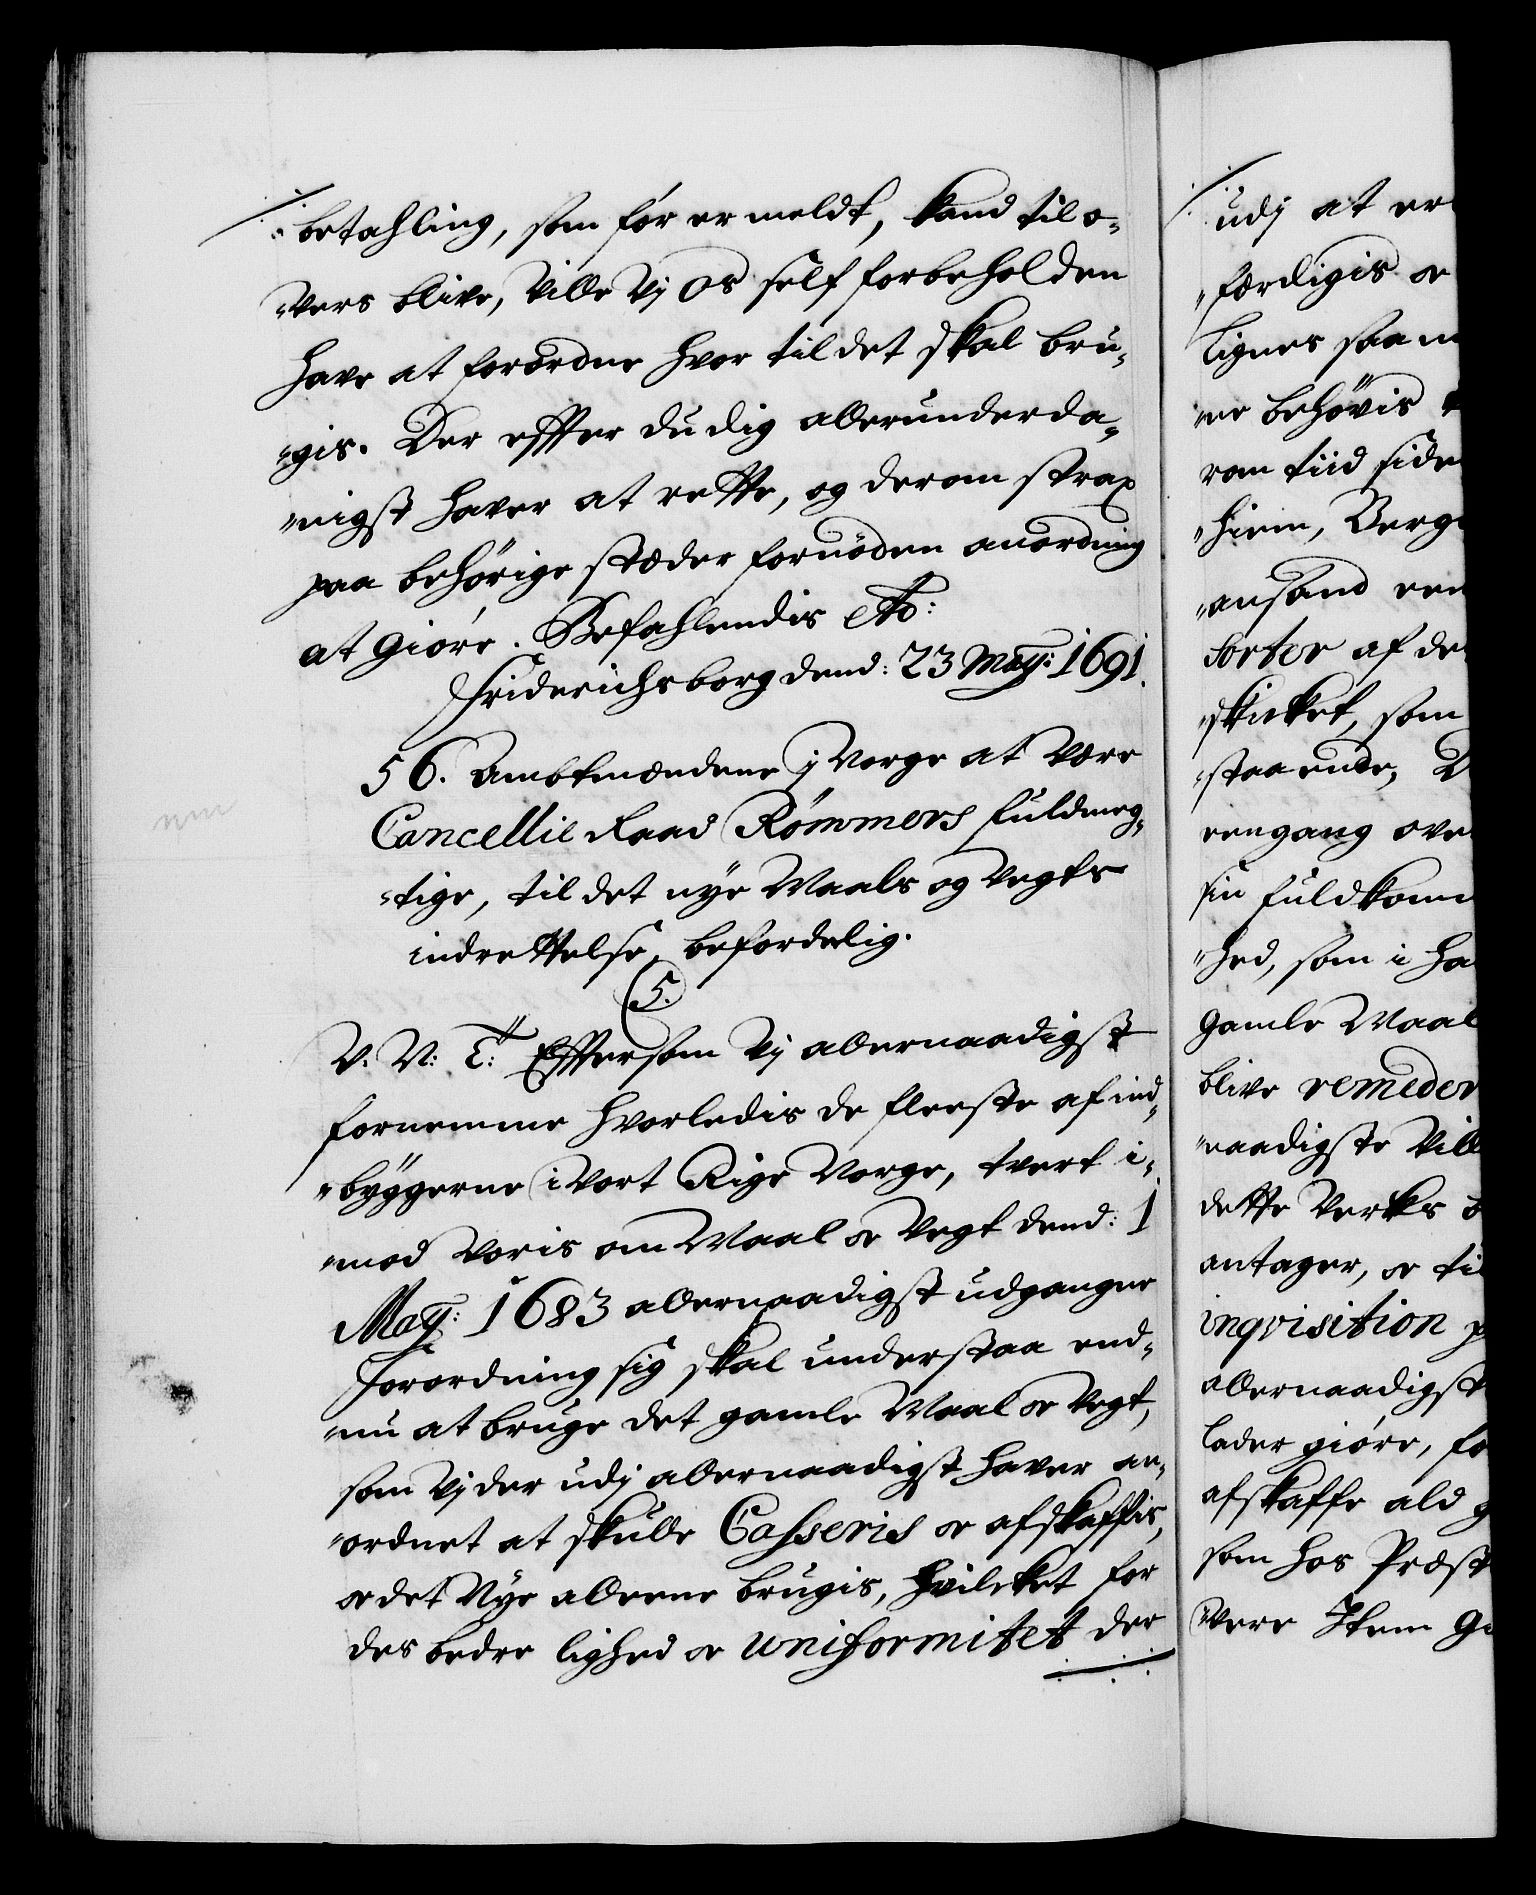 betahling, som før er meldt, kand til o-
vers blive, ville Vj Os self forbeholden
have at forordne hvor til det skal bru-
gis. Der effter du dig allerunderda-
nigst haver at rette, og derom strax
paa behörige stæder fornöden anordning
at giöre. Befahlendis etc:
Friderichsborg dend: 23 Maÿ: 1691.
56. Ambtmændene j Norge at være
Cancellie Raad Römmers fuldmeg-
tige, til det nye Maals og Vegts
indrettelse, beforderlig.
5.
V. V: T: Efftersom Vj allernaadigst
fornemme hvorledis de fleeste af ind-
byggerne i Vort Rige Norge, tvert i-
mod Voris om Maal oc Vegt dend: 1
Maÿ: 1683 allernaadigst udgangne
Forordning sig skal understaa end-
nu at bruge det gamle Maal oc Vegt,
som Vj der udj allernaadigst haver an-
ordnet at skulle Casseris oc afskaffis,
oc det Nye alleene brugis, hvilcket for
des bedre lighed oc uniformitet der
udj at er
færdigis oc
lignes saa
er behövis
rom tiid side
hiem, Berg
ansand een
sorter af de
skicket, som
staaende,
eengang ove
sin fuldkom
hed, som i ha
gamle Maal
blive remeder
naadigste Vill
dette Verks
antager, oc til
inqvisition
allernaadigst
lader giöre, fo
afskaffe ald g
som hos Præst
vere Item